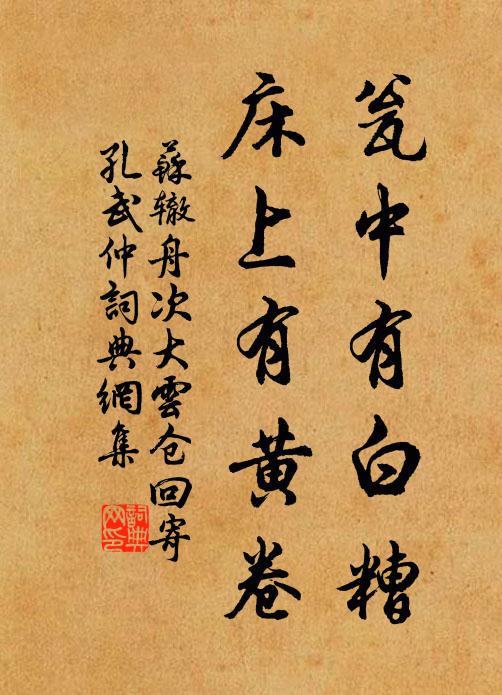 瓮中有白糟
床上有黄卷
蘇辙舟次大雲仓回寄
孔武仲詞典網集
詞典
网印